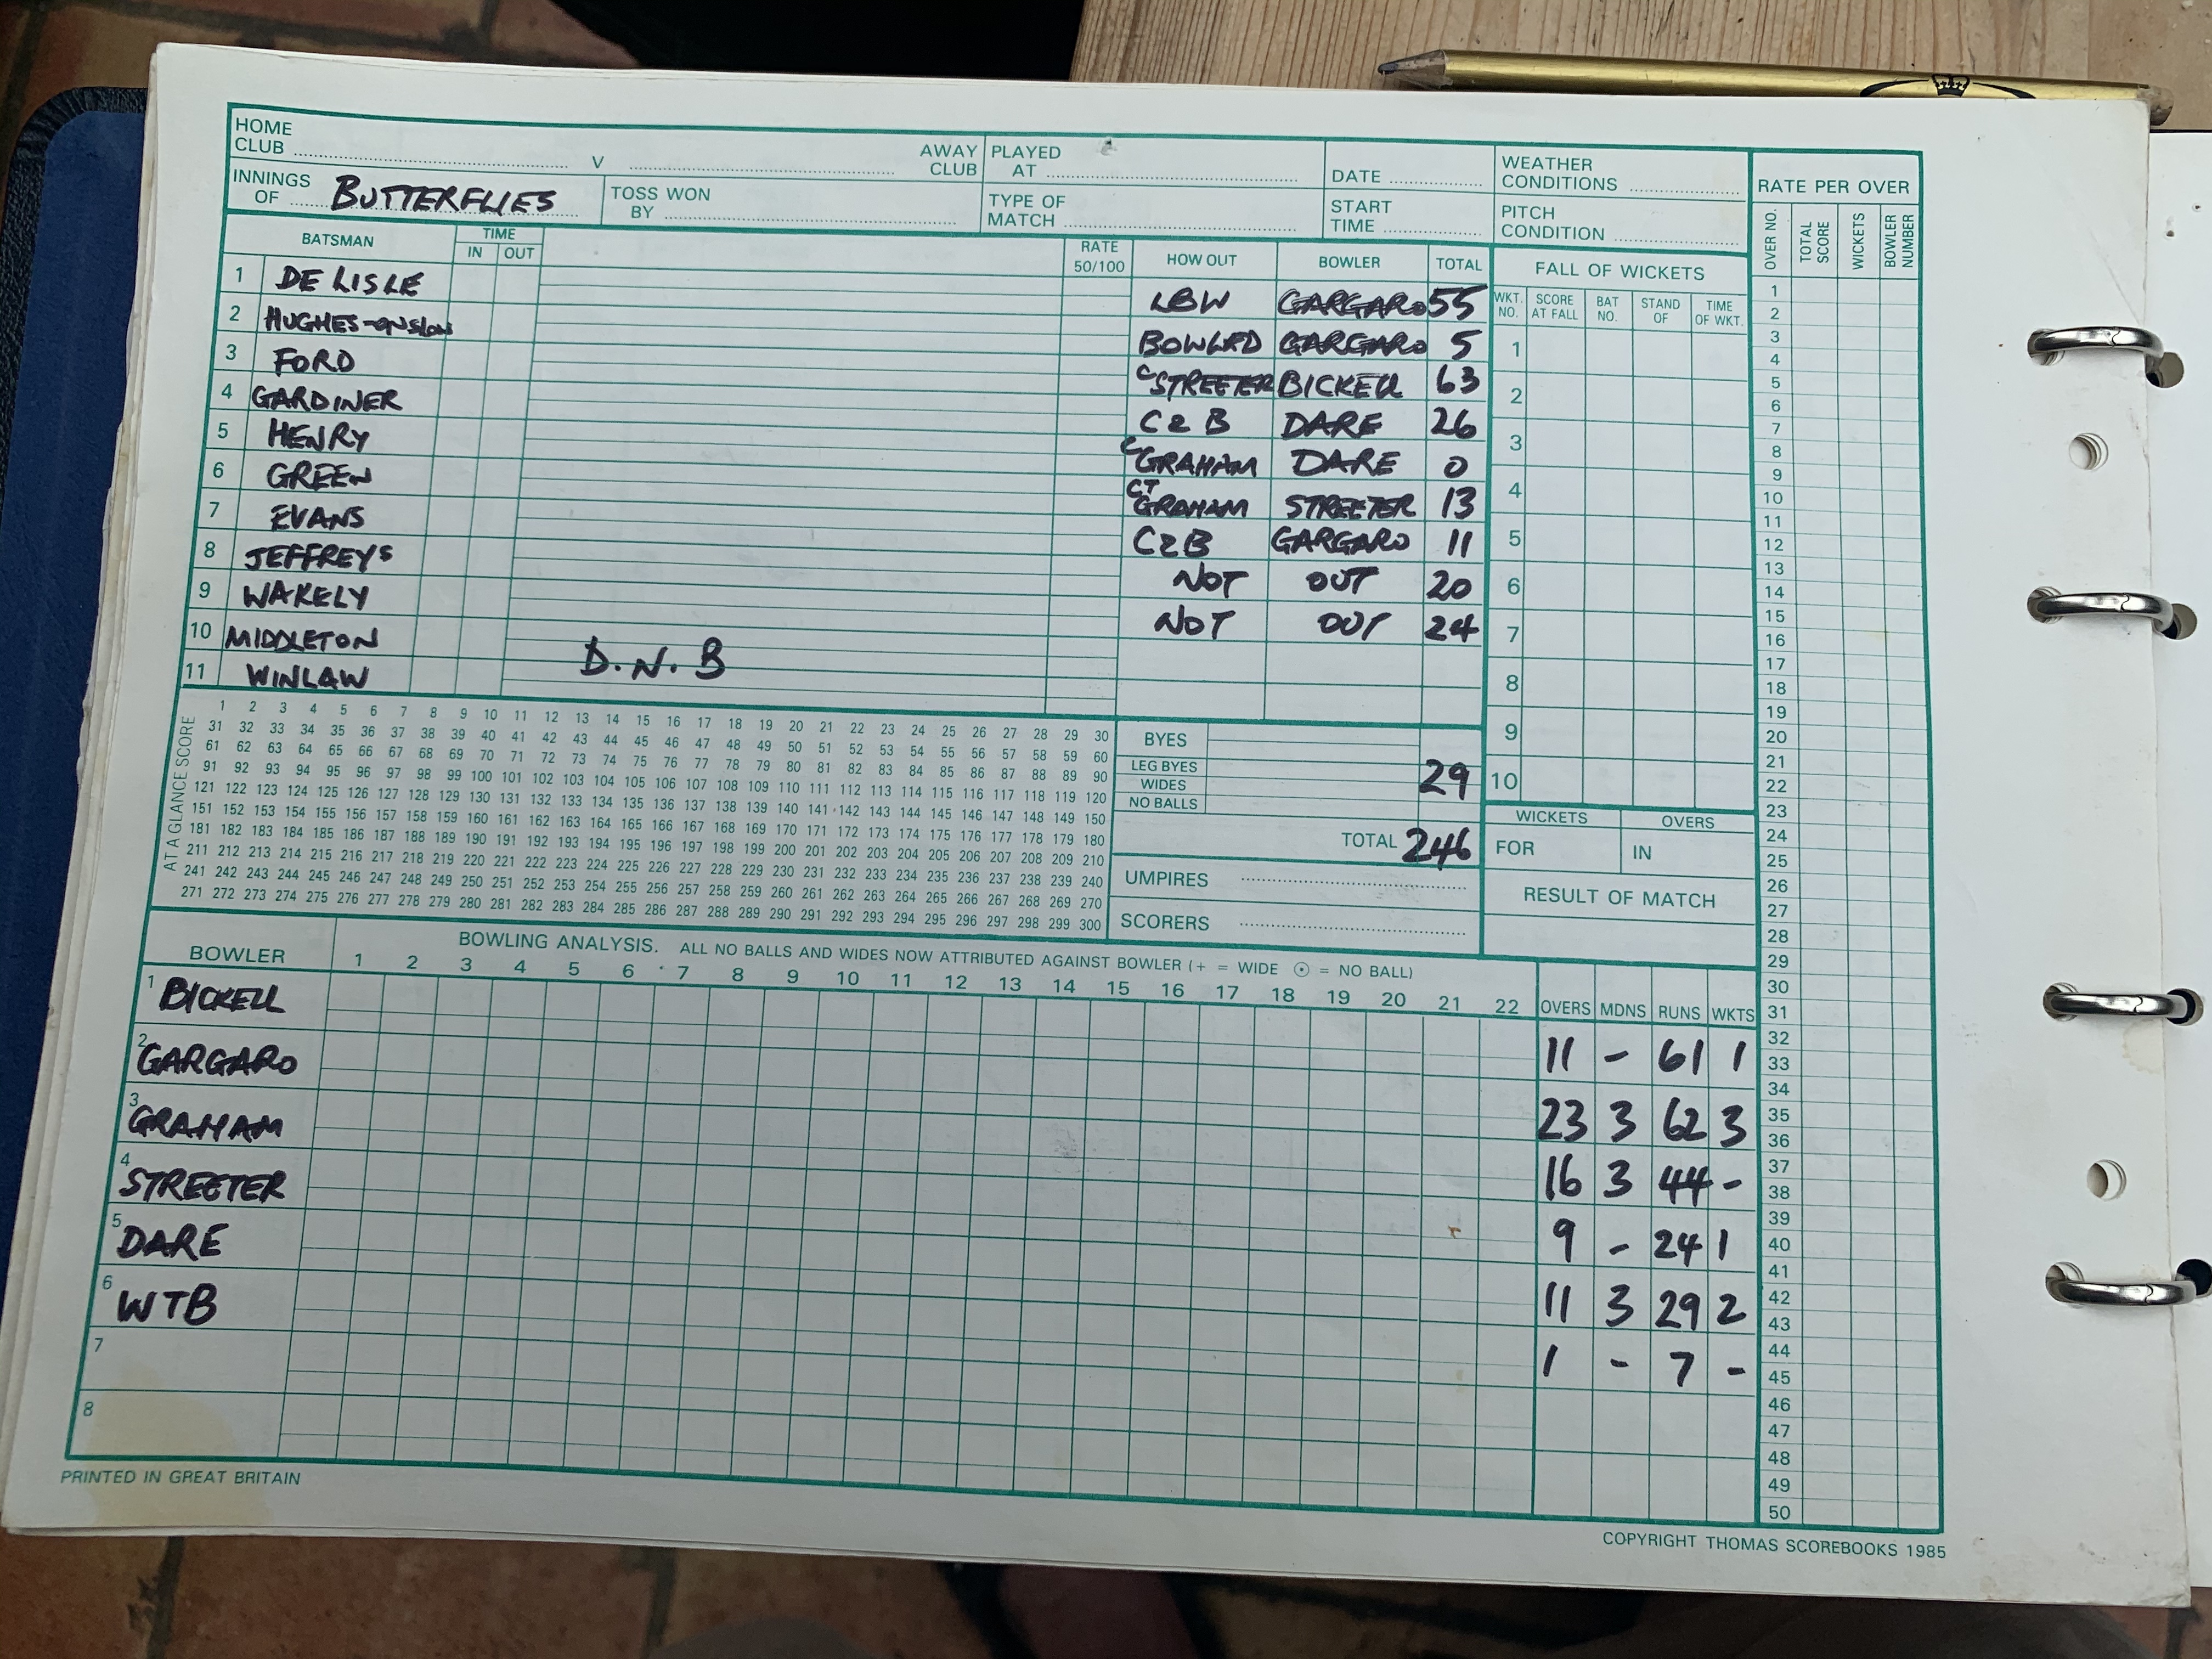 HOME CLUB ........ V ........ AWAY CLUB PLAYED AT ........ DATE ........ WEATHER CONDITIONS ........ RATE PER OVER
INNINGS OF BUTTERFLIES TOSS WON BY ........ TYPE OF MATCH ........ START TIME ........ PITCH CONDITION ........
OVER NO. TOTAL SCORE WICKETS BOWLER NUMBER
BATSMAN TIME IN OUT RATE 50/100 HOW OUT BOWLER TOTAL FALL OF WICKETS
WKT. NO. SCORE AT FALL BAT NO. STAND OF TIME OF WKT.
1 DE LISLE LBW GARGARO 55
2 HUGHES-ONSLOW BOWLED GARGARO 5
3 FORD C STREETER BICKELL 63
4 GARDINER C & B DARE 26
5 HENRY C GRAHAM DARE 0
6 GREEN CT GRAHAM STREETER 13
7 EVANS C & B GARGARO 11
8 JEFFREYS NOT OUT 20
9 WAKELY NOT OUT 24
10 MIDDLETON
D.N.B
11 WINLAW
1
2
3
4
5
6
7
8
9
10
AT A GLANCE SCORE
1 2 3 4 5 6 7 8 9 10 11 12 13 14 15 16 17 18 19 20 21 22 23 24 25 26 27 28 29 30
31 32 33 34 35 36 37 38 39 40 41 42 43 44 45 46 47 48 49 50 51 52 53 54 55 56 57 58 59 60
61 62 63 64 65 66 67 68 69 70 71 72 73 74 75 76 77 78 79 80 81 82 83 84 85 86 87 88 89 90
91 92 93 94 95 96 97 98 99 100 101 102 103 104 105 106 107 108 109 110 111 112 113 114 115 116 117 118 119 120
121 122 123 124 125 126 127 128 129 130 131 132 133 134 135 136 137 138 139 140 141 142 143 144 145 146 147 148 149 150
151 152 153 154 155 156 157 158 159 160 161 162 163 164 165 166 167 168 169 170 171 172 173 174 175 176 177 178 179 180
181 182 183 184 185 186 187 188 189 190 191 192 193 194 195 196 197 198 199 200 201 202 203 204 205 206 207 208 209 210
211 212 213 214 215 216 217 218 219 220 221 222 223 224 225 226 227 228 229 230 231 232 233 234 235 236 237 238 239 240
241 242 243 244 245 246 247 248 249 250 251 252 253 254 255 256 257 258 259 260 261 262 263 264 265 266 267 268 269 270
271 272 273 274 275 276 277 278 279 280 281 282 283 284 285 286 287 288 289 290 291 292 293 294 295 296 297 298 299 300
BYES
LEG BYES 29
WIDES
NO BALLS
TOTAL 246
UMPIRES ........
SCORERS ........
WICKETS OVERS
FOR IN
RESULT OF MATCH
BOWLER BOWLING ANALYSIS. ALL NO BALLS AND WIDES NOW ATTRIBUTED AGAINST BOWLER (+ = WIDE ⊙ = NO BALL)
1 2 3 4 5 6 7 8 9 10 11 12 13 14 15 16 17 18 19 20 21 22 OVERS MDNS RUNS WKTS
1 BICKELL 11 - 61 1
2 GARGARO 23 3 62 3
3 GRAHAM 16 3 44 -
4 STREETER 9 - 24 1
5 DARE 11 3 29 2
6 WTB 1 - 7 -
7
8
1
2
3
4
5
6
7
8
9
10
11
12
13
14
15
16
17
18
19
20
21
22
23
24
25
26
27
28
29
30
31
32
33
34
35
36
37
38
39
40
41
42
43
44
45
46
47
48
49
50
PRINTED IN GREAT BRITAIN
COPYRIGHT THOMAS SCOREBOOKS 1985